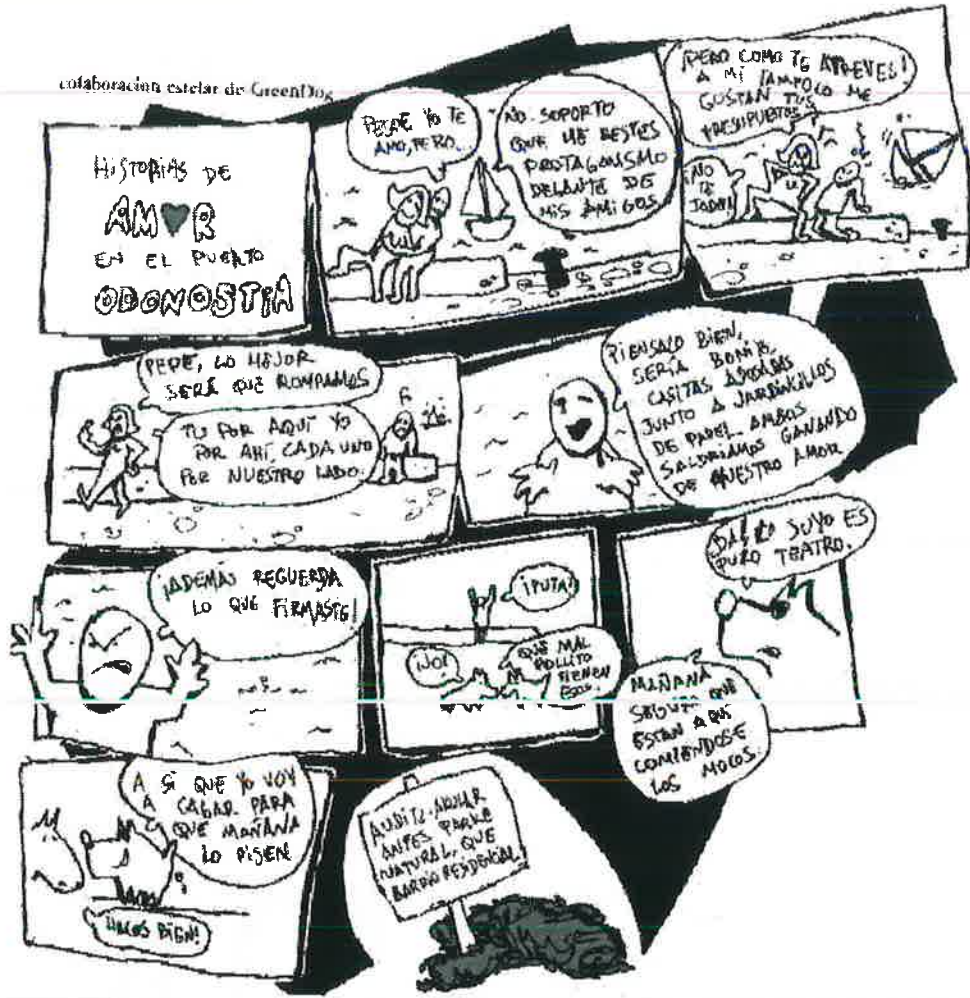 colaboracion estelar de GreenDog
HISTORIAS DE
AMOR
EN EL PUERTO
ODONOSTIA
PEPE YO TE
AMO, PERO...
NO SOPORTO
QUE ME RESTES
PROTAGONISMO
DELANTE DE
MIS AMIGOS
¡PERO COMO TE ATREVES!
A MÍ TAMPOCO ME
GUSTAN TUS
PRESUPUESTOS
¡NO
TE
JODE!
PEPE, LO MEJOR
SERÁ QUE ROMPAMOS
TU POR AQUÍ YO
POR AHÍ, CADA UNO
POR NUESTRO LADO.
PIENSALO BIEN,
SERÍA BONITO,
CASITAS ADOSADAS
JUNTO A JARDINCILLOS
DE PAPEL... AMBOS
SALDRIAMOS GANANDO
DE NUESTRO AMOR
¡ADEMÁS RECUERDA
LO QUE FIRMASTE!
¡PUTA!
¡JO!
QUE MAL
ROLLITO
TIENEN
ESOS.
LO SUYO ES
PURO TEATRO.
MAÑANA
SEGURO QUE
ESTAN AQUÍ
COMIÉNDOSE
LOS MOCOS.
ASÍ QUE YO VOY
A CAGAR PARA
QUE MAÑANA
LO PISEN
¡HACES BIEN!
AUDITZ-AKULAR
ANTES PARKE
NATURAL, QUE
BARRIO RESIDENCIAL